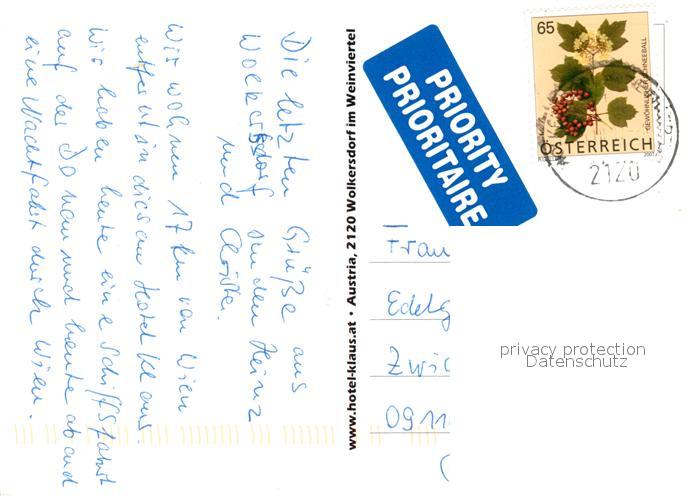 Die letzten Grüße aus
Wolkersdorf senden Heinz
und Christa.
Wir wohnen 17 km von Wien
entfernt in diesem Hotel Klaus.
Wir haben heute eine Schiffsfahrt
auf der Donau und heute abend
eine Nachtfahrt durch Wien.
www.hotel-klaus.at • Austria, 2120 Wolkersdorf im Weinviertel
PRIORITY
PRIORITAIRE
65
GEWÖHNLICHER SCHNEEBALL
ÖSTERREICH
2007
2120
Frau
Edelg
Zwic
0911
privacy protection
Datenschutz